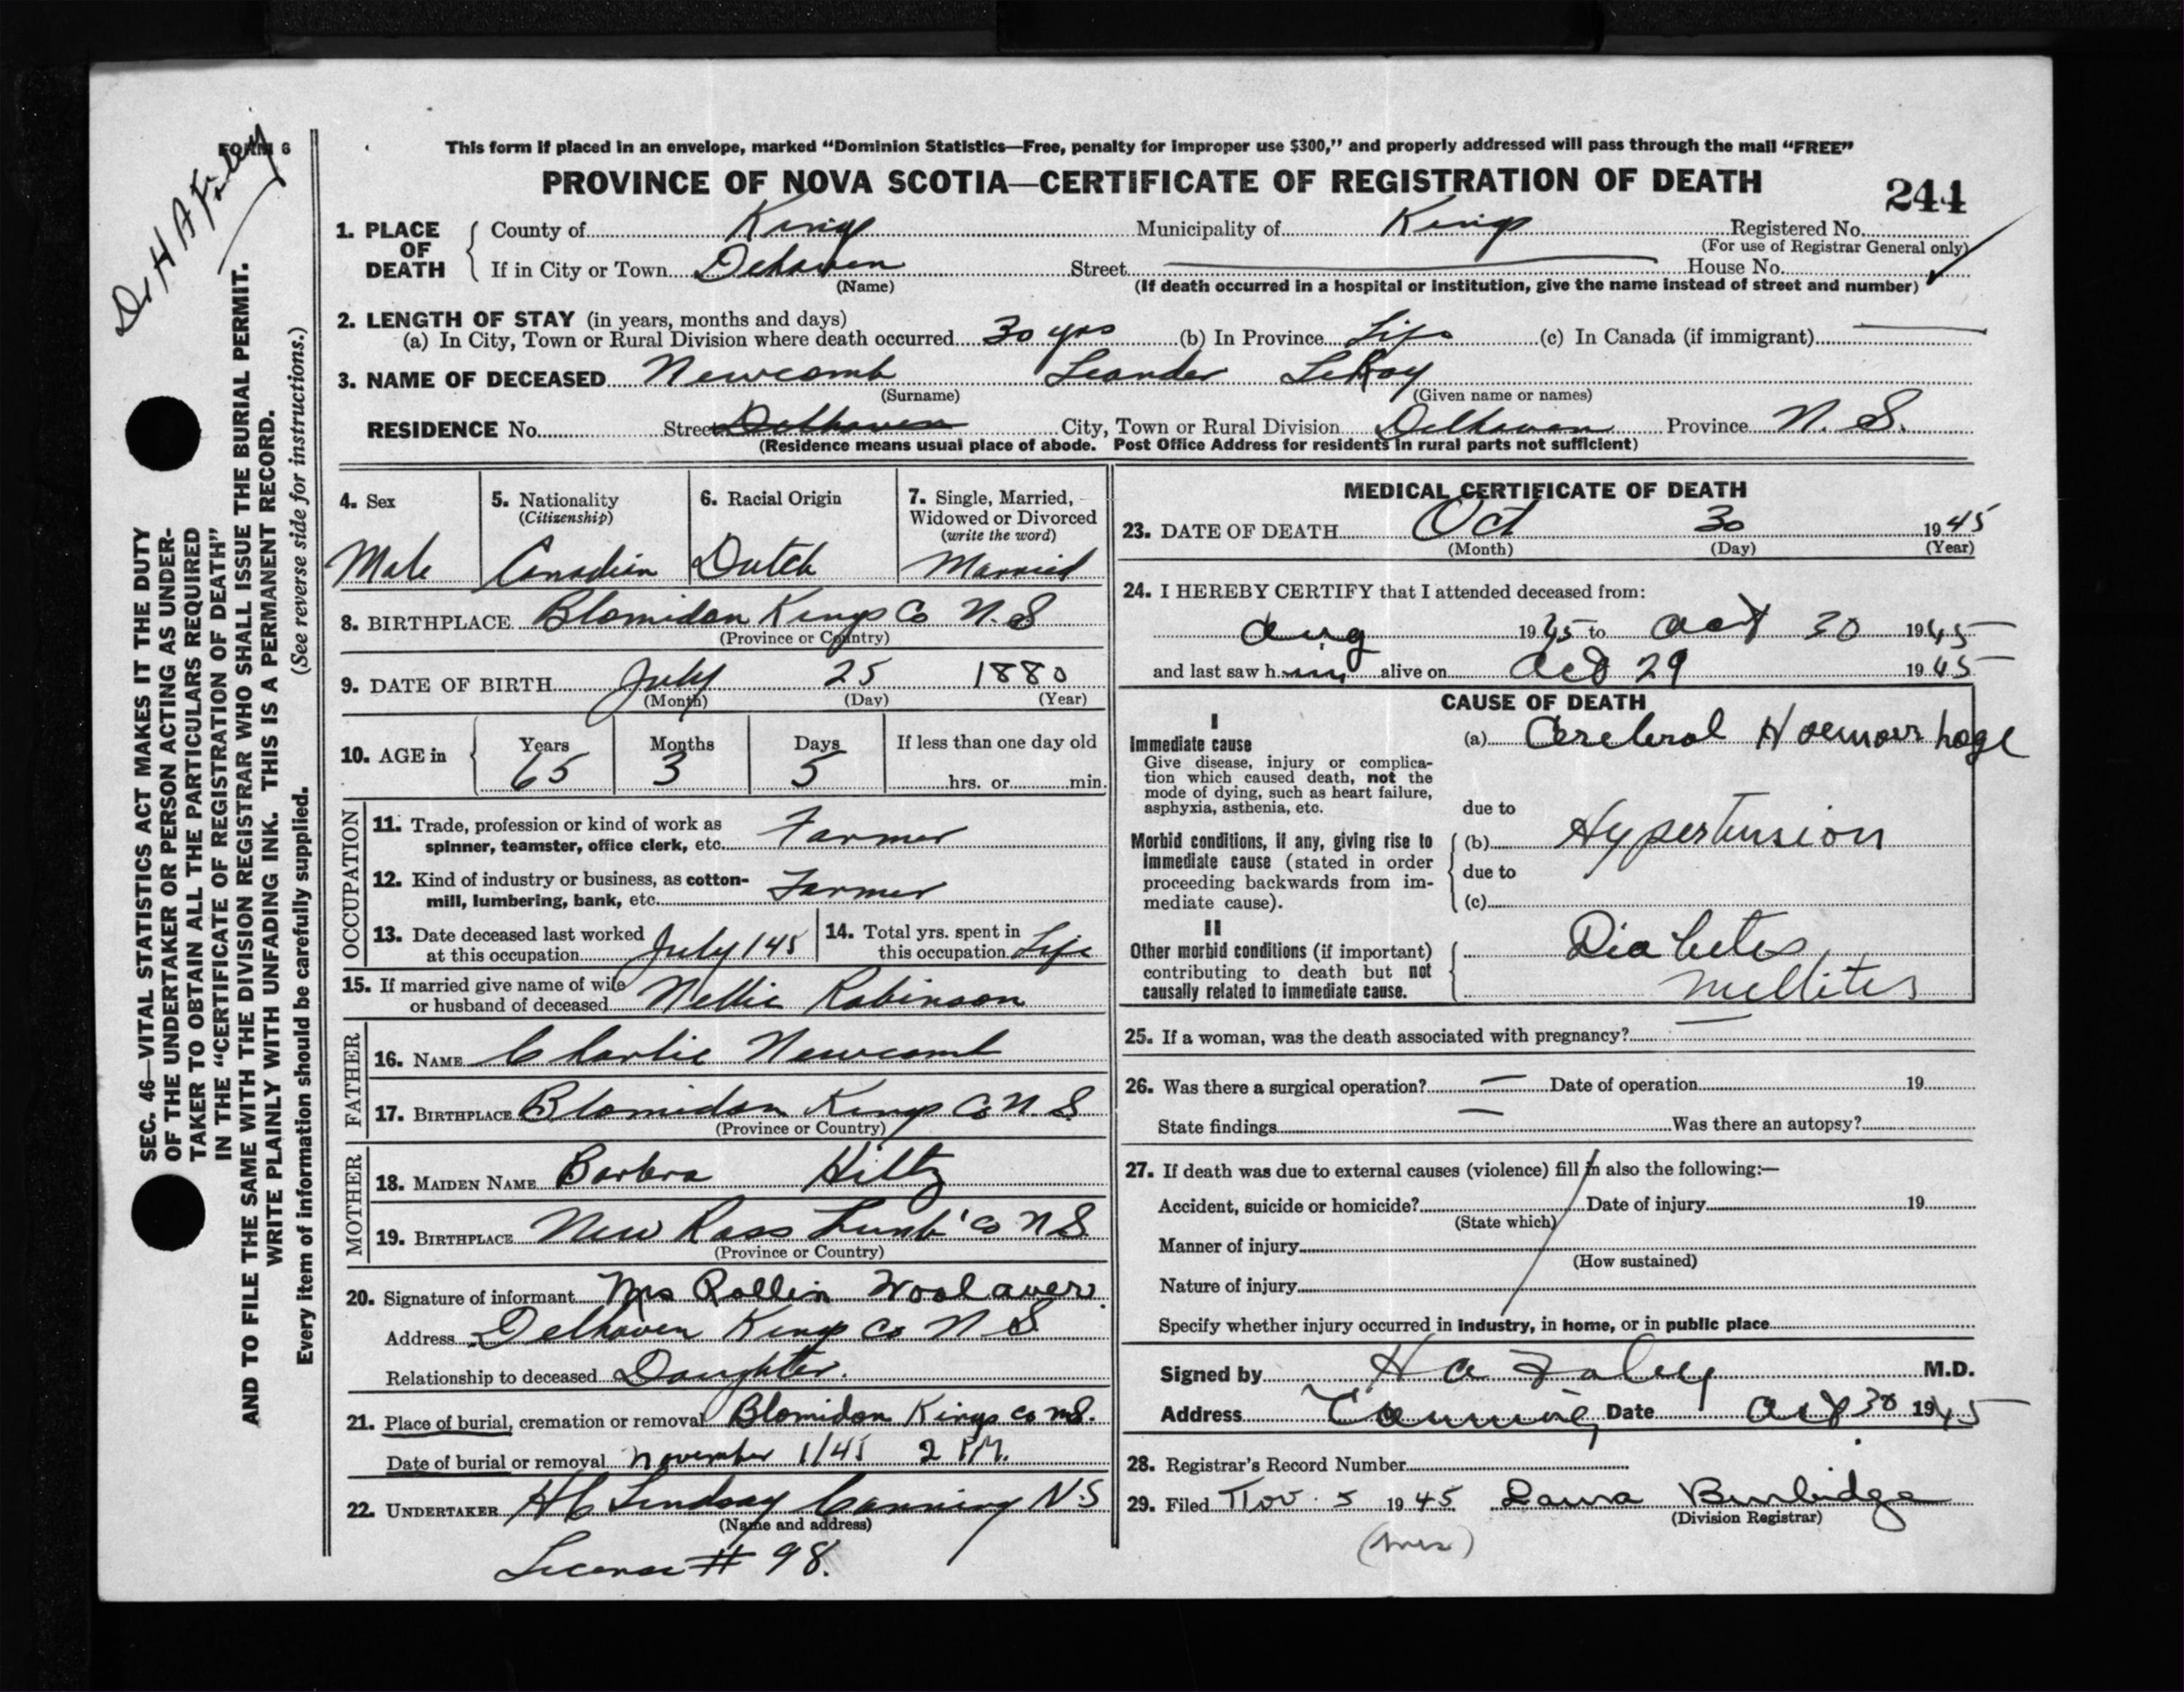 FORM 6
Dr H A Foley
This form if placed in an envelope, marked “Dominion Statistics—Free, penalty for improper use $300,” and properly addressed will pass through the mail “FREE”
PROVINCE OF NOVA SCOTIA—CERTIFICATE OF REGISTRATION OF DEATH
244
1. PLACE OF DEATH County of Kings Municipality of Kings Registered No.
(For use of Registrar General only)
If in City or Town Delhaven Street House No.
(Name) (If death occurred in a hospital or institution, give the name instead of street and number)
2. LENGTH OF STAY (in years, months and days)
(a) In City, Town or Rural Division where death occurred 30 yrs (b) In Province Life (c) In Canada (if immigrant)
3. NAME OF DECEASED Newcomb Leander LeRoy
(Surname) (Given name or names)
RESIDENCE No. Street Delhaven City, Town or Rural Division Delhaven Province N. S.
(Residence means usual place of abode. Post Office Address for residents in rural parts not sufficient)
4. Sex
Male
5. Nationality
(Citizenship)
Canadian
6. Racial Origin
Dutch
7. Single, Married,
Widowed or Divorced
(write the word)
Married
8. BIRTHPLACE Blomidon Kings Co N.S
(Province or Country)
9. DATE OF BIRTH July 25 1880
(Month) (Day) (Year)
10. AGE in Years Months Days If less than one day old
65 3 5 hrs. or min.
OCCUPATION
11. Trade, profession or kind of work as
spinner, teamster, office clerk, etc. Farmer
12. Kind of industry or business, as cotton-
mill, lumbering, bank, etc. Farmer
13. Date deceased last worked
at this occupation July /45
14. Total yrs. spent in
this occupation Life
15. If married give name of wife
or husband of deceased Nellie Robinson
FATHER
16. NAME Charlie Newcomb
17. BIRTHPLACE Blomidon Kings Co N.S.
(Province or Country)
MOTHER
18. MAIDEN NAME Barbra Hiltz
19. BIRTHPLACE New Ross Lunb' Co N S.
(Province or Country)
20. Signature of informant Mrs Rollin Woolaver.
Address Delhaven Kings Co N S
Relationship to deceased Daughter.
21. Place of burial, cremation or removal Blomidon Kings Co N.S.
Date of burial or removal November 1/45 2 P.M.
22. UNDERTAKER H C Lindsay Canning N.S
(Name and address)
License # 98.
MEDICAL CERTIFICATE OF DEATH
23. DATE OF DEATH Oct 30 1945
(Month) (Day) (Year)
24. I HEREBY CERTIFY that I attended deceased from:
Aug 1945 to Oct 30 1945
and last saw him alive on Oct 29 1945
CAUSE OF DEATH
I
Immediate cause (a) Cerebral Haemorrhage
Give disease, injury or complica-
tion which caused death, not the
mode of dying, such as heart failure,
asphyxia, asthenia, etc. due to
Morbid conditions, if any, giving rise to (b) Hypertension
immediate cause (stated in order
proceeding backwards from im- due to
mediate cause). (c)
II
Other morbid conditions (if important) Diabetes
contributing to death but not
causally related to immediate cause. Mellites
25. If a woman, was the death associated with pregnancy? —
26. Was there a surgical operation? — Date of operation 19
State findings — Was there an autopsy?
27. If death was due to external causes (violence) fill in also the following:—
Accident, suicide or homicide? Date of injury 19
(State which)
Manner of injury
(How sustained)
Nature of injury
Specify whether injury occurred in industry, in home, or in public place
Signed by H A Foley M.D.
Address Canning Date Oct 30 1945
28. Registrar's Record Number
29. Filed Nov. 5 1945 Laura Burbidge
(Division Registrar)
(Mrs)
SEC. 46—VITAL STATISTICS ACT MAKES IT THE DUTY
OF THE UNDERTAKER OR PERSON ACTING AS UNDER-
TAKER TO OBTAIN ALL THE PARTICULARS REQUIRED
IN THE “CERTIFICATE OF REGISTRATION OF DEATH”
AND TO FILE THE SAME WITH THE DIVISION REGISTRAR WHO SHALL ISSUE THE BURIAL PERMIT.
WRITE PLAINLY WITH UNFADING INK. THIS IS A PERMANENT RECORD.
Every item of information should be carefully supplied. (See reverse side for instructions.)